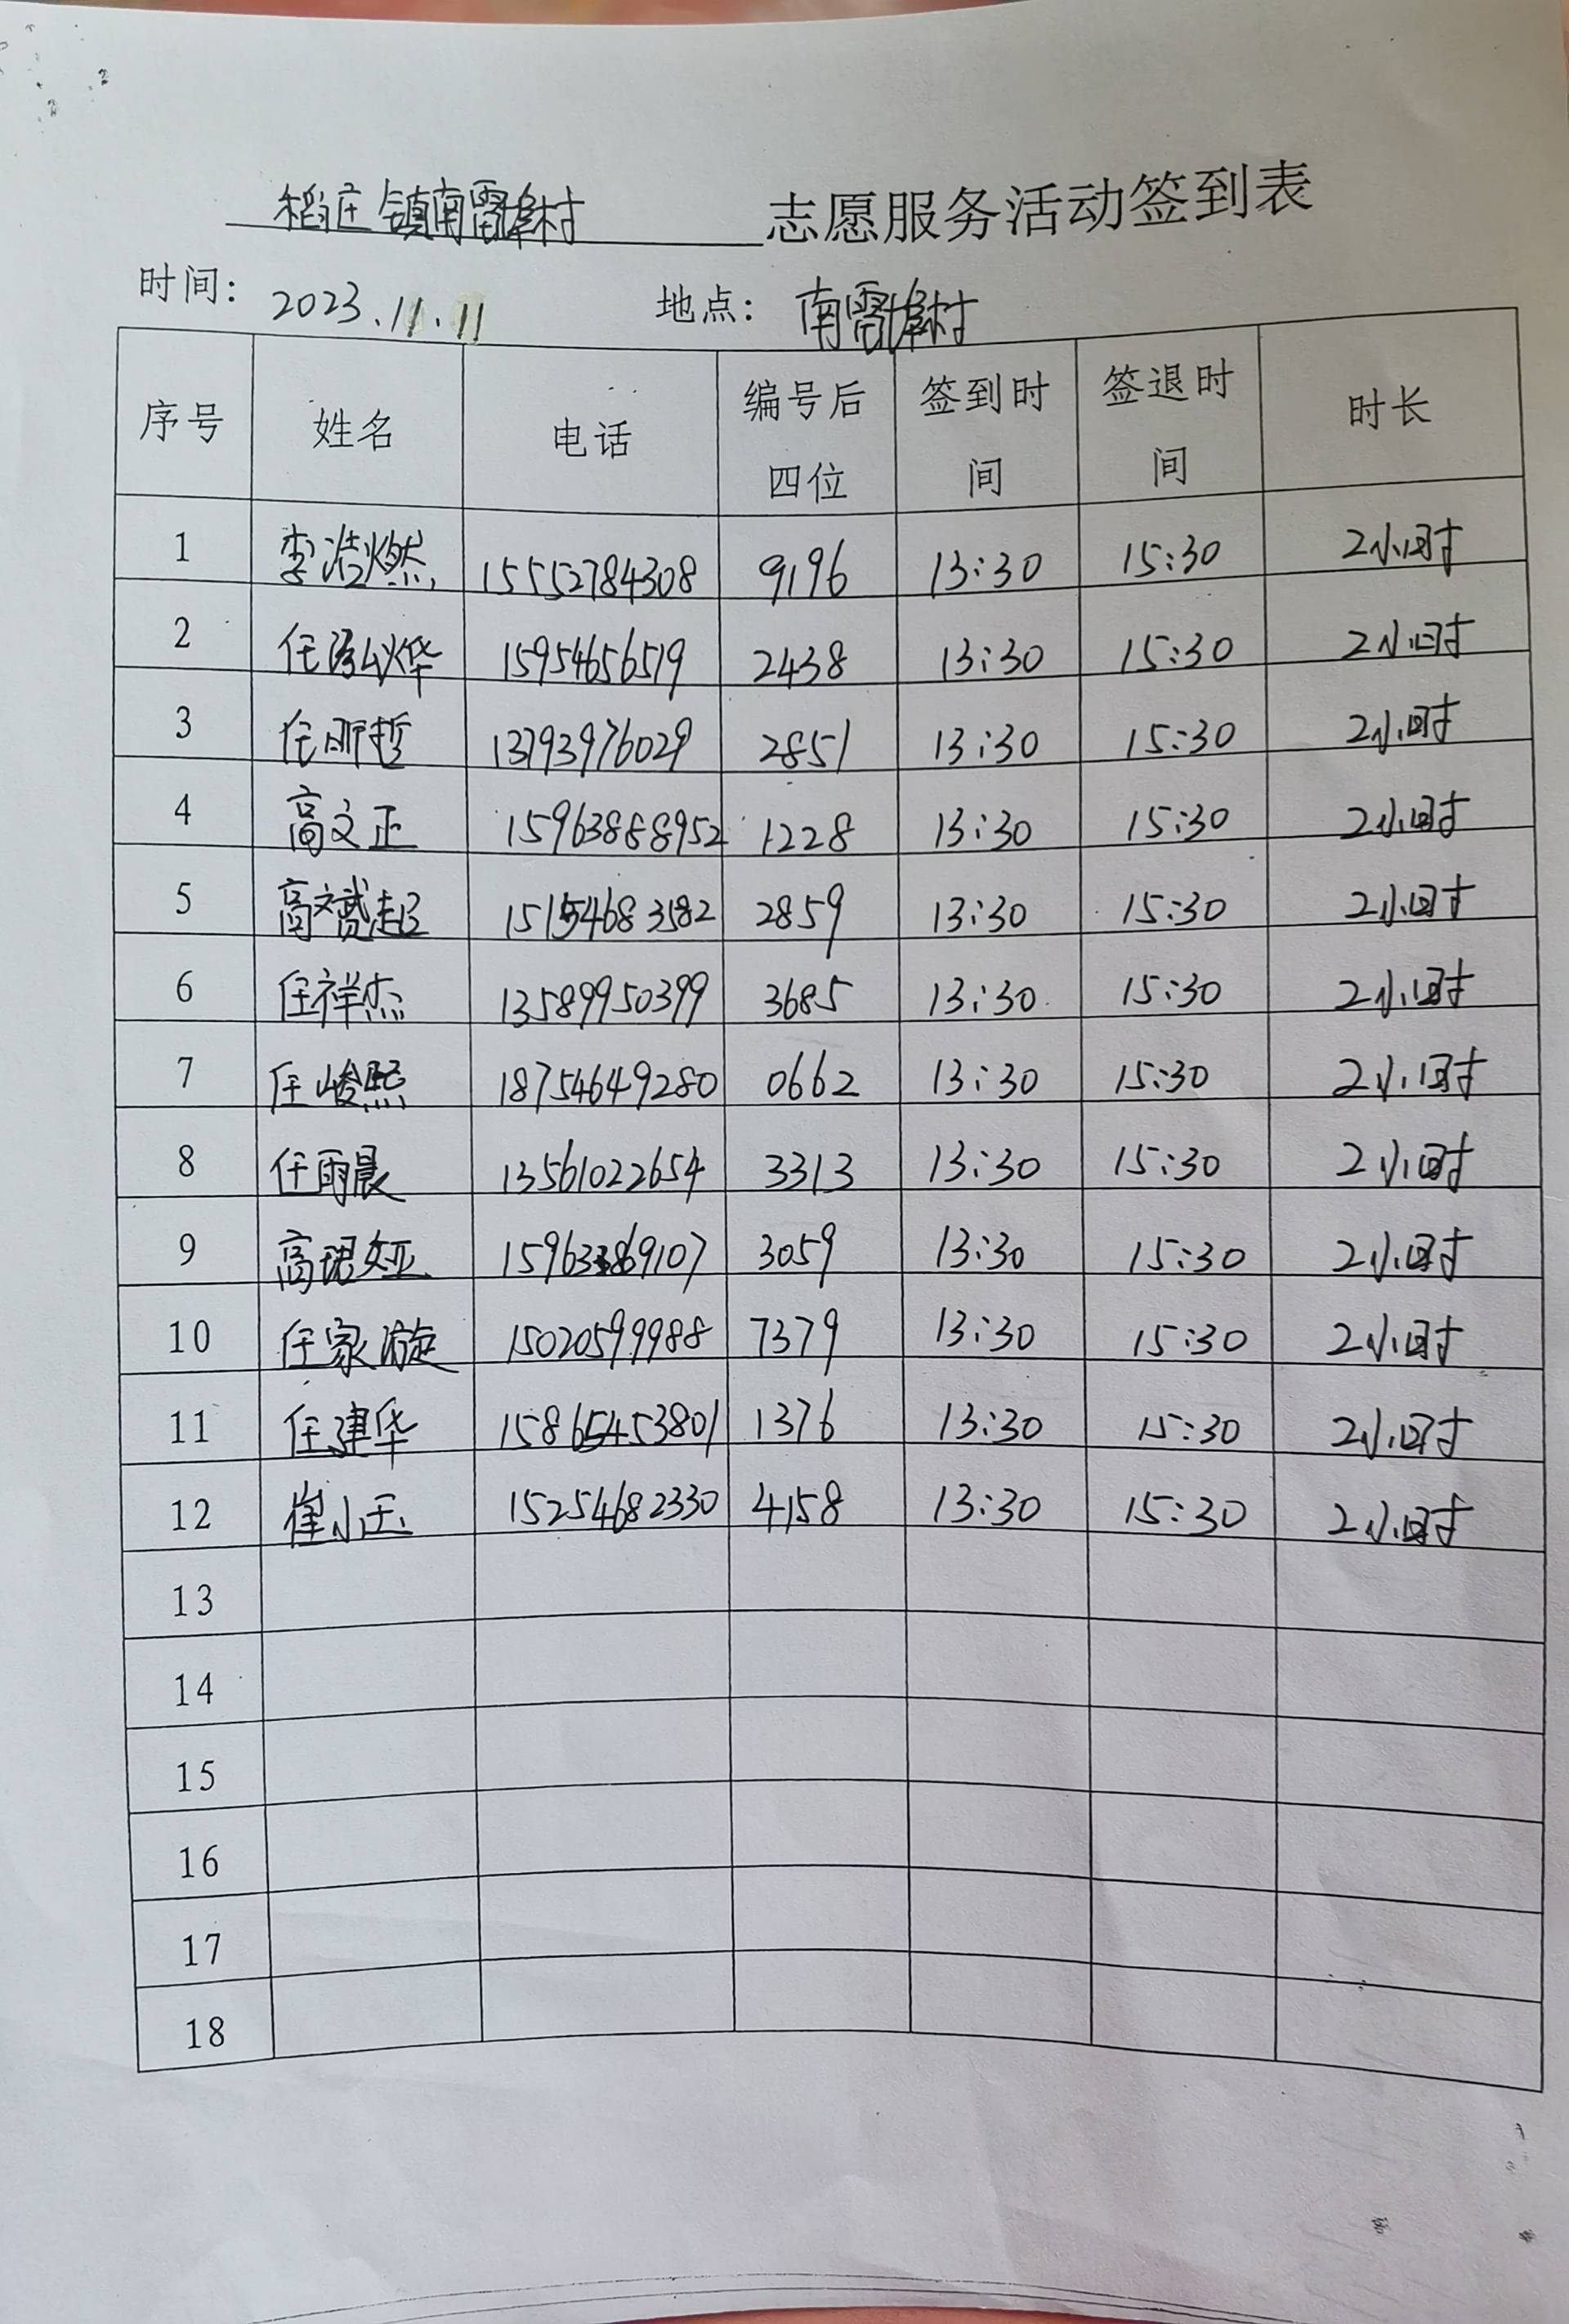 稻庄镇南雷埠村 志愿服务活动签到表
时间: 2023.11.11 地点: 南雷埠村
序号 姓名 电话 编号后四位 签到时间 签退时间 时长
1 李浩燃 15552784308 9196 13:30 15:30 2小时
2 任 烨 15954656519 2438 13:30 15:30 2小时
3 任 哲 13793976029 2851 13:30 15:30 2小时
4 高文正 15963888952 1228 13:30 15:30 2小时
5 高 超 15154683582 2859 13:30 15:30 2小时
6 任祥杰 13589950399 3685 13:30 15:30 2小时
7 任峻熙 18754649280 0662 13:30 15:30 2小时
8 任雨晨 13561022654 3313 13:30 15:30 2小时
9 高珺娅 3059 13:30 15:30 2小时
10 任家漩 15020599988 7379 13:30 15:30 2小时
11 任建华 15865453801 1376 13:30 15:30 2小时
12 崔小玉 15254682330 4158 13:30 15:30 2小时
13
14
15
16
17
18